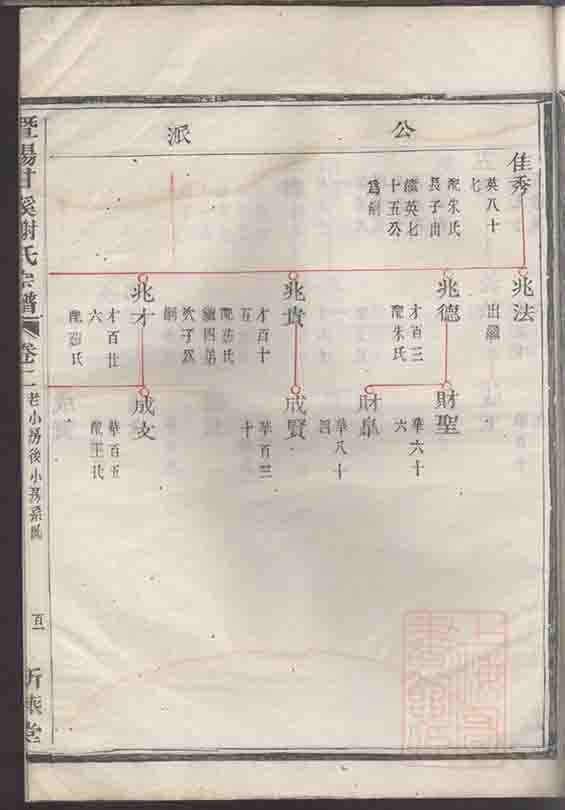 公派
佳秀
英八十
七
配朱氏
長子出
繼英七
十五公
爲嗣
兆法
出繼
兆德
才百三
配朱氏
兆貴
才百十
五
配茹氏
繼四弟
次子爲
嗣
兆才
才百廿
六
配茹氏
財聖
華六十
六
財皐
華八十
四
成賢
華百三
十
成文
華百五
配王氏
暨陽甘溪謝氏宗譜
卷二
老小房後小房系圖
百一